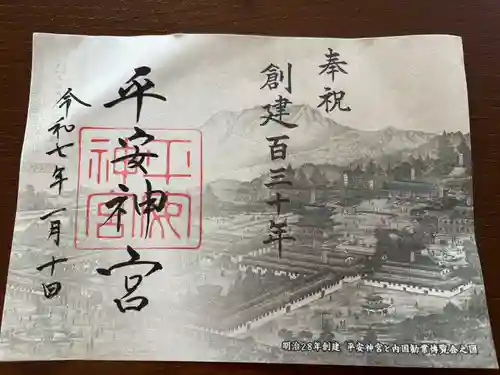 奉祝
創建百三十年
平安神宮
令和七年一月十日
明治28年創建 平安神宮と内国勧業博覧会之図